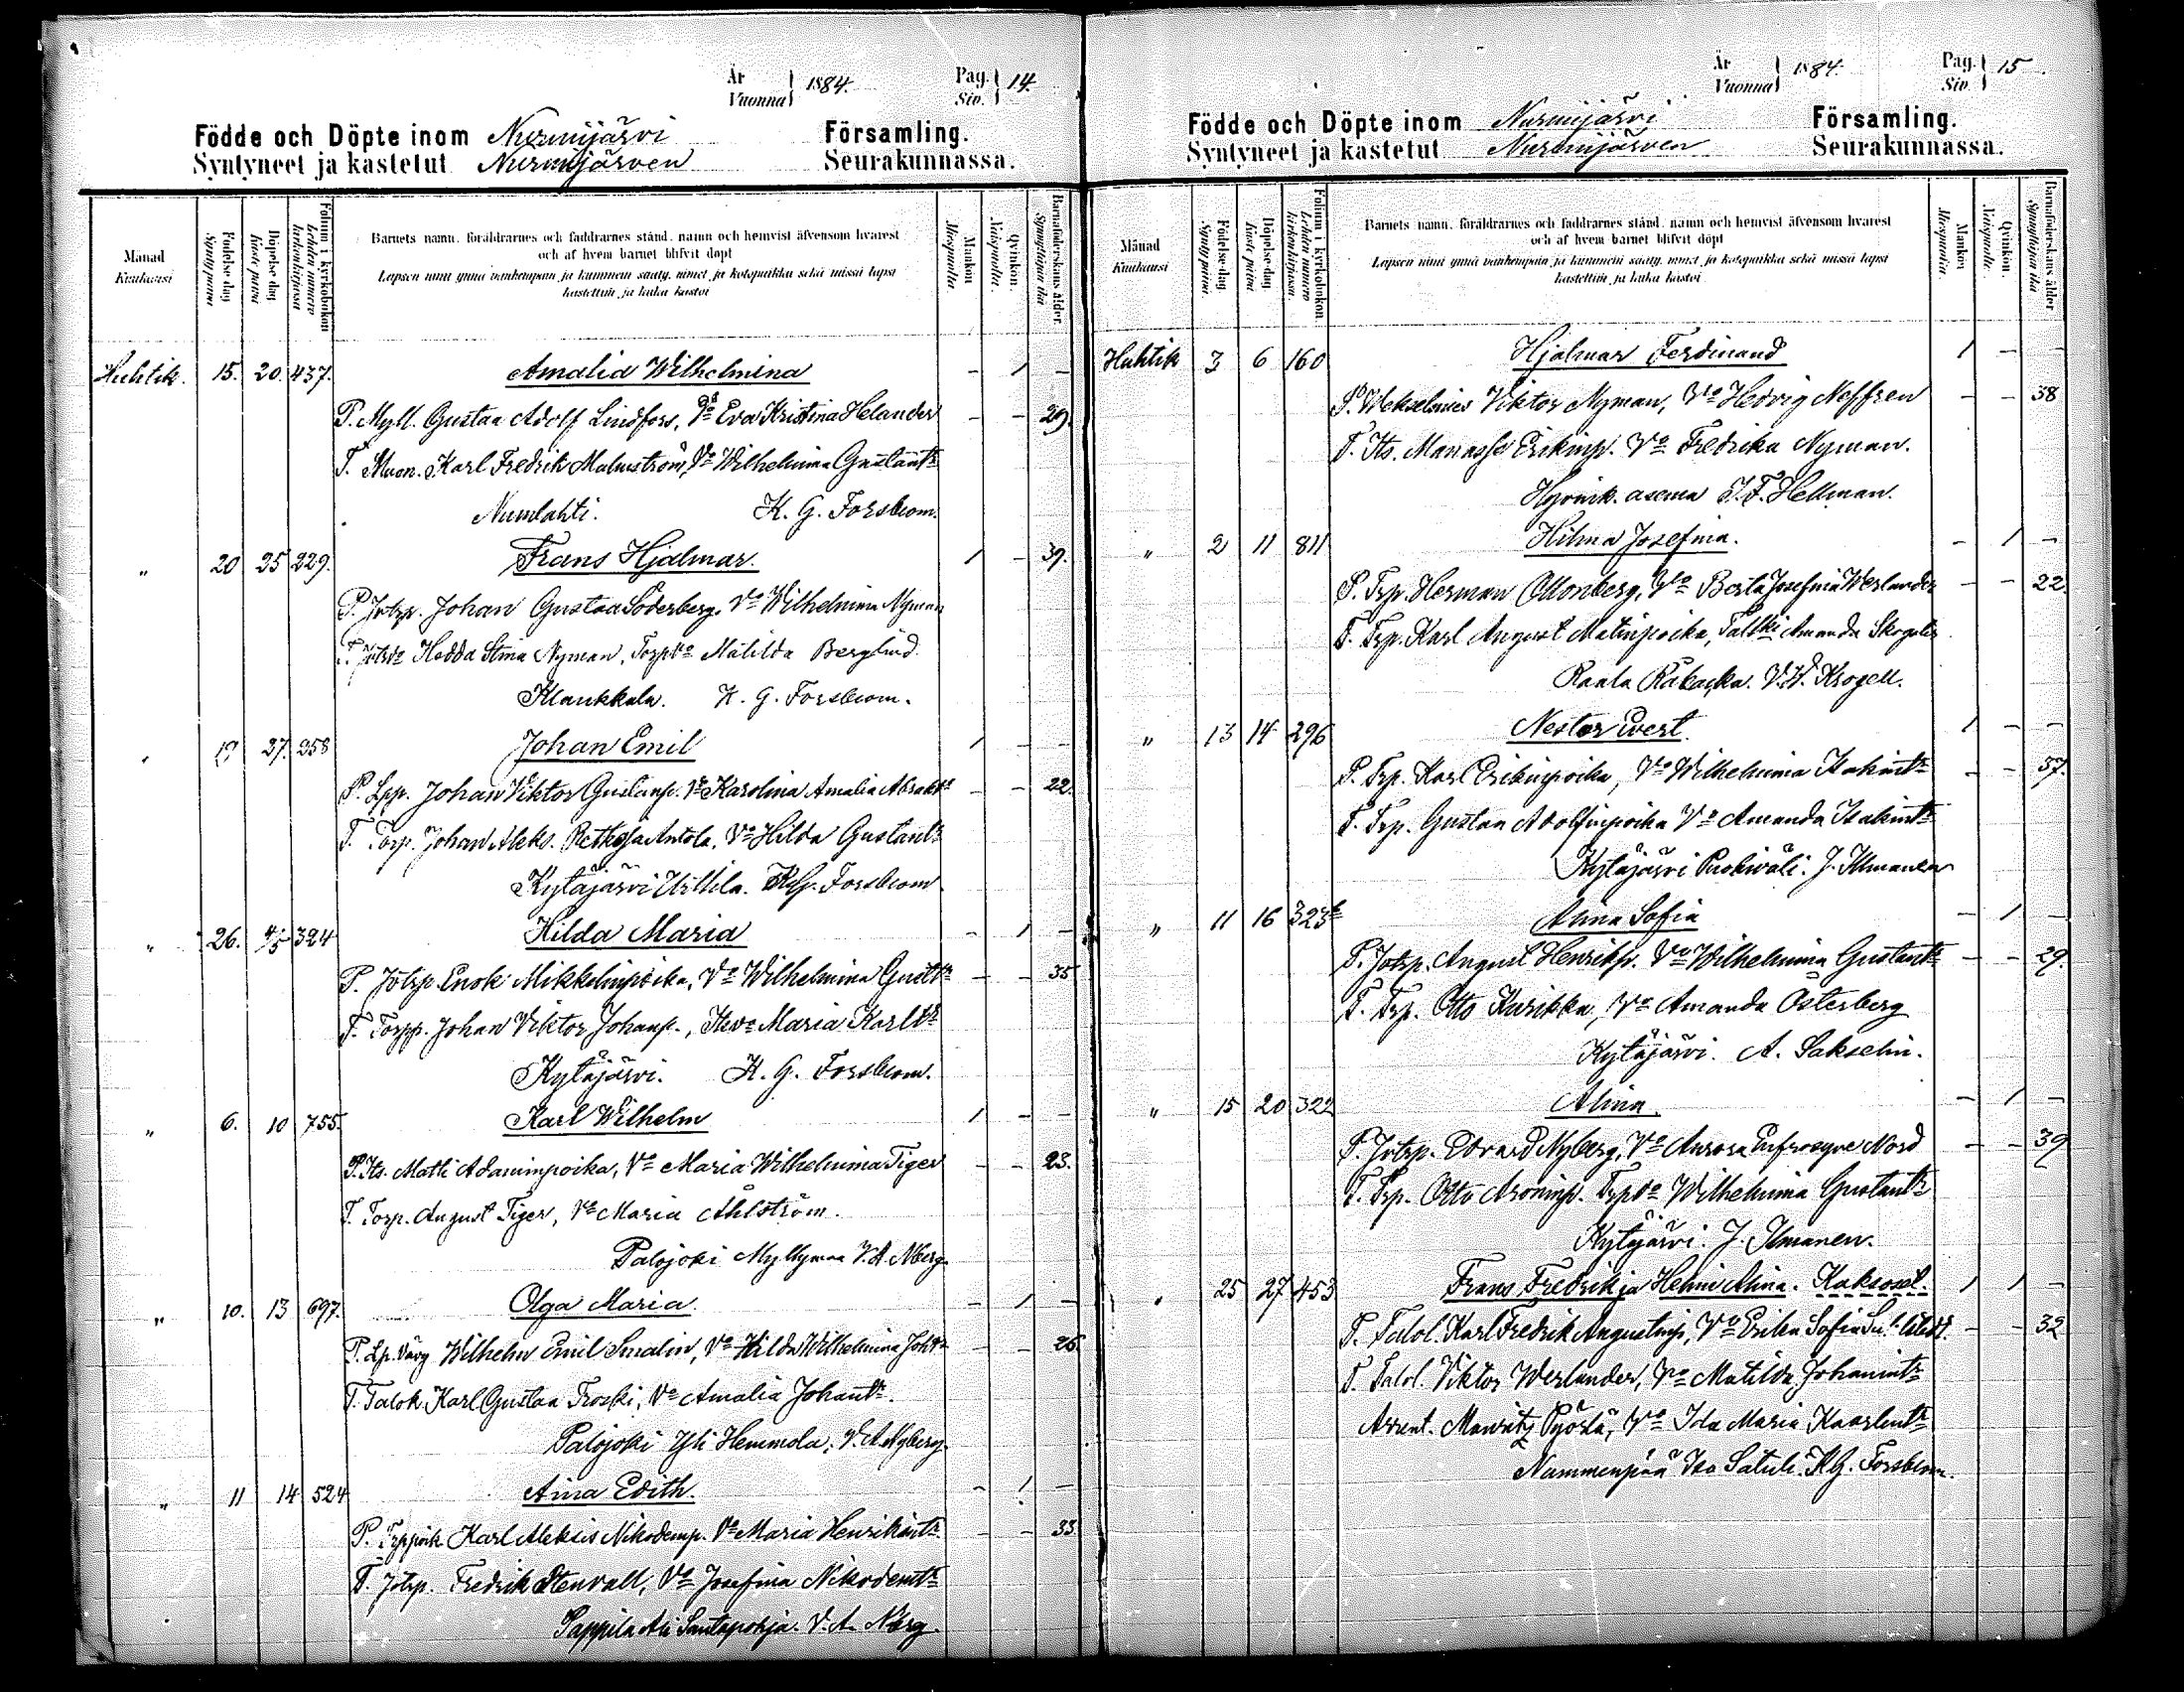 År
Vuonna 1884.
Pag.
Siv. 14.
Födde och Döpte inom Nurmijärvi Församling.
Syntyneet ja kastetut Nurmijärven Seurakunnassa.
Månad
Kuukausi
Födelse-dag
Synty päivä
Döpelse-dag
Kaste päivä
Folium i kyrkoboken
Lehden numero kirkonkirjassa
Barnets namn, föräldrarnes och faddrarnes stånd, namn och hemvist äfvensom hvarest
och af hvem barnet blifvit döpt
Lapsen nimi ynnä vanhempain ja kummein sääty, nimet ja kotopaikka sekä missä lapsi
kastettiin ja kuka kastoi
Mankön
Miespuolia.
Qvinkön.
Vaispuolia.
Barnaföderskans ålder.
Synnyttäjän ikä
Huhtik. 15. 20. 437. Amalia Wilhelmina - 1 -
P. Myll. Gustaa Adolf Lindfors, Vo Eva Kristina Helander - - 29.
T. Muon. Karl Fredrik Malmström, Vo Wilhelmina Gustantr
Numlahti. K. G. Forsblom.
" 20 25 229. Frans Hjalmar. 1 - 39.
P. Jotrp. Johan Gustaa Söderberg, Vo Wilhelmina Nyman
T. Hedda Stina Nyman, Torpvo Matilda Berglind.
Klaukkala. K. G. Forsblom.
" 27. 258 Johan Emil 1 - -
P. Lpp. Johan Viktor Gustanp. Vo Karolina Amalia - - 22.
T. Torp. Johan Aleks. Antola, Vo Hilda Gustantr
Kytäjärvi K.G. Forsblom
" 26. 4/5 324 Hilda Maria - 1 -
P. Jotrp. Enok Mikkelinpoika, Vo Wilhelmina Gusttr - - 35
T. Torpp. Johan Viktor Johanp., Maria Karltr
Kytäjärvi. K. G. Forsblom.
" 6. 10 755. Karl Wilhelm 1 - -
P. Its. Matti Adaminpoika, Vo Maria Wilhelmina Tiger - - 23.
T. Torp. August Tiger, Vo Maria Ahlström.
Palojoki Myllymaa V. A. Nberg.
" 10. 13 697. Olga Maria. - 1 -
P. Lp. Wilhelm Emil Smalin, Vo Hilda Wilhelmina Johtr - - 26.
T. Talok. Karl Gustaa Troski, Vo Amalia Johantr.
Palojoki Yli Hemmola. V. A. Nyberg.
" 11 14 524 Aina Edith. - 1 -
P. Trppoik Karl Aleksis Nikodemp. Vo Maria Henrikintr - - 33
T. Jotrp. Fredrik Stenvall, Vo Josefina Nikodemtr
Pappila Ali Santapohja. V. A. Nberg.
År
Vuonna 1884.
Pag.
Siv. 15.
Födde och Döpte inom Nurmijärvi Församling.
Syntyneet ja kastetut Nurmijärven Seurakunnassa.
Månad
Kuukausi
Födelse-dag
Synty päivä
Döpelse-dag
Kaste päivä
Folium i kyrkoboken
Lehden numero kirkonkirjassa.
Barnets namn, föräldrarnes och faddrarnes stånd, namn och hemvist äfvensom hvarest
och af hvem barnet blifvit döpt
Lapsen nimi ynnä vanhempain ja kummein sääty, nimet ja kotopaikka sekä missä lapsi
kastettiin ja kuka kastoi
Mankön
Miespuolia.
Qvinkön.
Vaispuolia.
Barnaföderskans ålder
Synnyttäjän ikä
Huhtik 3 6 160 Hjalmar Ferdinand 1 - -
P. Viktor Nyman, Vo Hedvig Neffren - - 38
T. Its. Manasse Erikinp. Vo Fredrika Nyman.
Hyvink. asema J. F. Hellman.
" 2 11 811 Hilma Josefina. - 1 -
P. Trp. Herman Ottonberg, Vo Berta Josefina Werlander - - 22.
T. Trp. Karl August Matinpoika, Amanda Skogster
Raala Räkaska. V. W. Krogell.
" 13 14 296 Nestor Evert 1 - -
P. Trp. Karl Erikinpoika, Vo Wilhelmina Isakintr - - 37.
T. Trp. Gustaa Adolfinpoika Vo Amanda Isakintr
Kytäjärvi J. Ilmanen
" 11 16 323 Alina Sofia - 1 -
P. Jotrp. August Henrikp. Vo Wilhelmina Gustantr - - 29.
T. Trp. Otto Kurikka, Vo Amanda Österberg
Kytäjärvi. A. Sakselin.
" 15 20 322 Alina. - 1 -
P. Jotrp. Edvard Nyberg, Vo Aurora Eufrosyne Nord - - 39
T. Trp. Otto Aroninp. Trpvo Wilhelmina Gustantr
Kytäjärvi. J. Ilmanen.
" 25 27 453 Frans Fredrik ja Helmi Alina. Kaksoset. 1 1 -
P. Talol. Karl Fredrik Augustinp, Vo Erika Sofia - - 32
T. Talol. Viktor Werlander, Vo Matilda Johanintr
Arrent. Mauritz Pyörlä, Vo Ida Maria Kaarlentr
Nummenpää Iso Satuli. K.G. Forsblom.